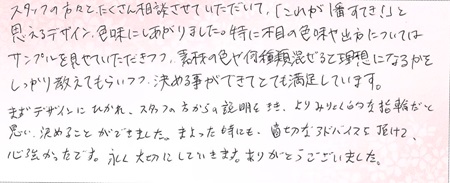 スタッフの方々とたくさん相談させていただいて、「これが1番すてき!」と
思えるデザイン、色味にしあがりました。特に木目の色味や出方については
サンプルを見せていただきつつ、素材の色や何種類混ぜると理想になるかを
しっかり教えてもらいつつ、決める事ができてとても満足しています。
まずデザインにひかれ、スタッフの方からの説明をきき、よりみりょく的な指輪だと
思い、決めることができました。まよった時にも、適切なアドバイスを頂けて、
心強かったです。永く大切にしていきます。ありがとうございました。